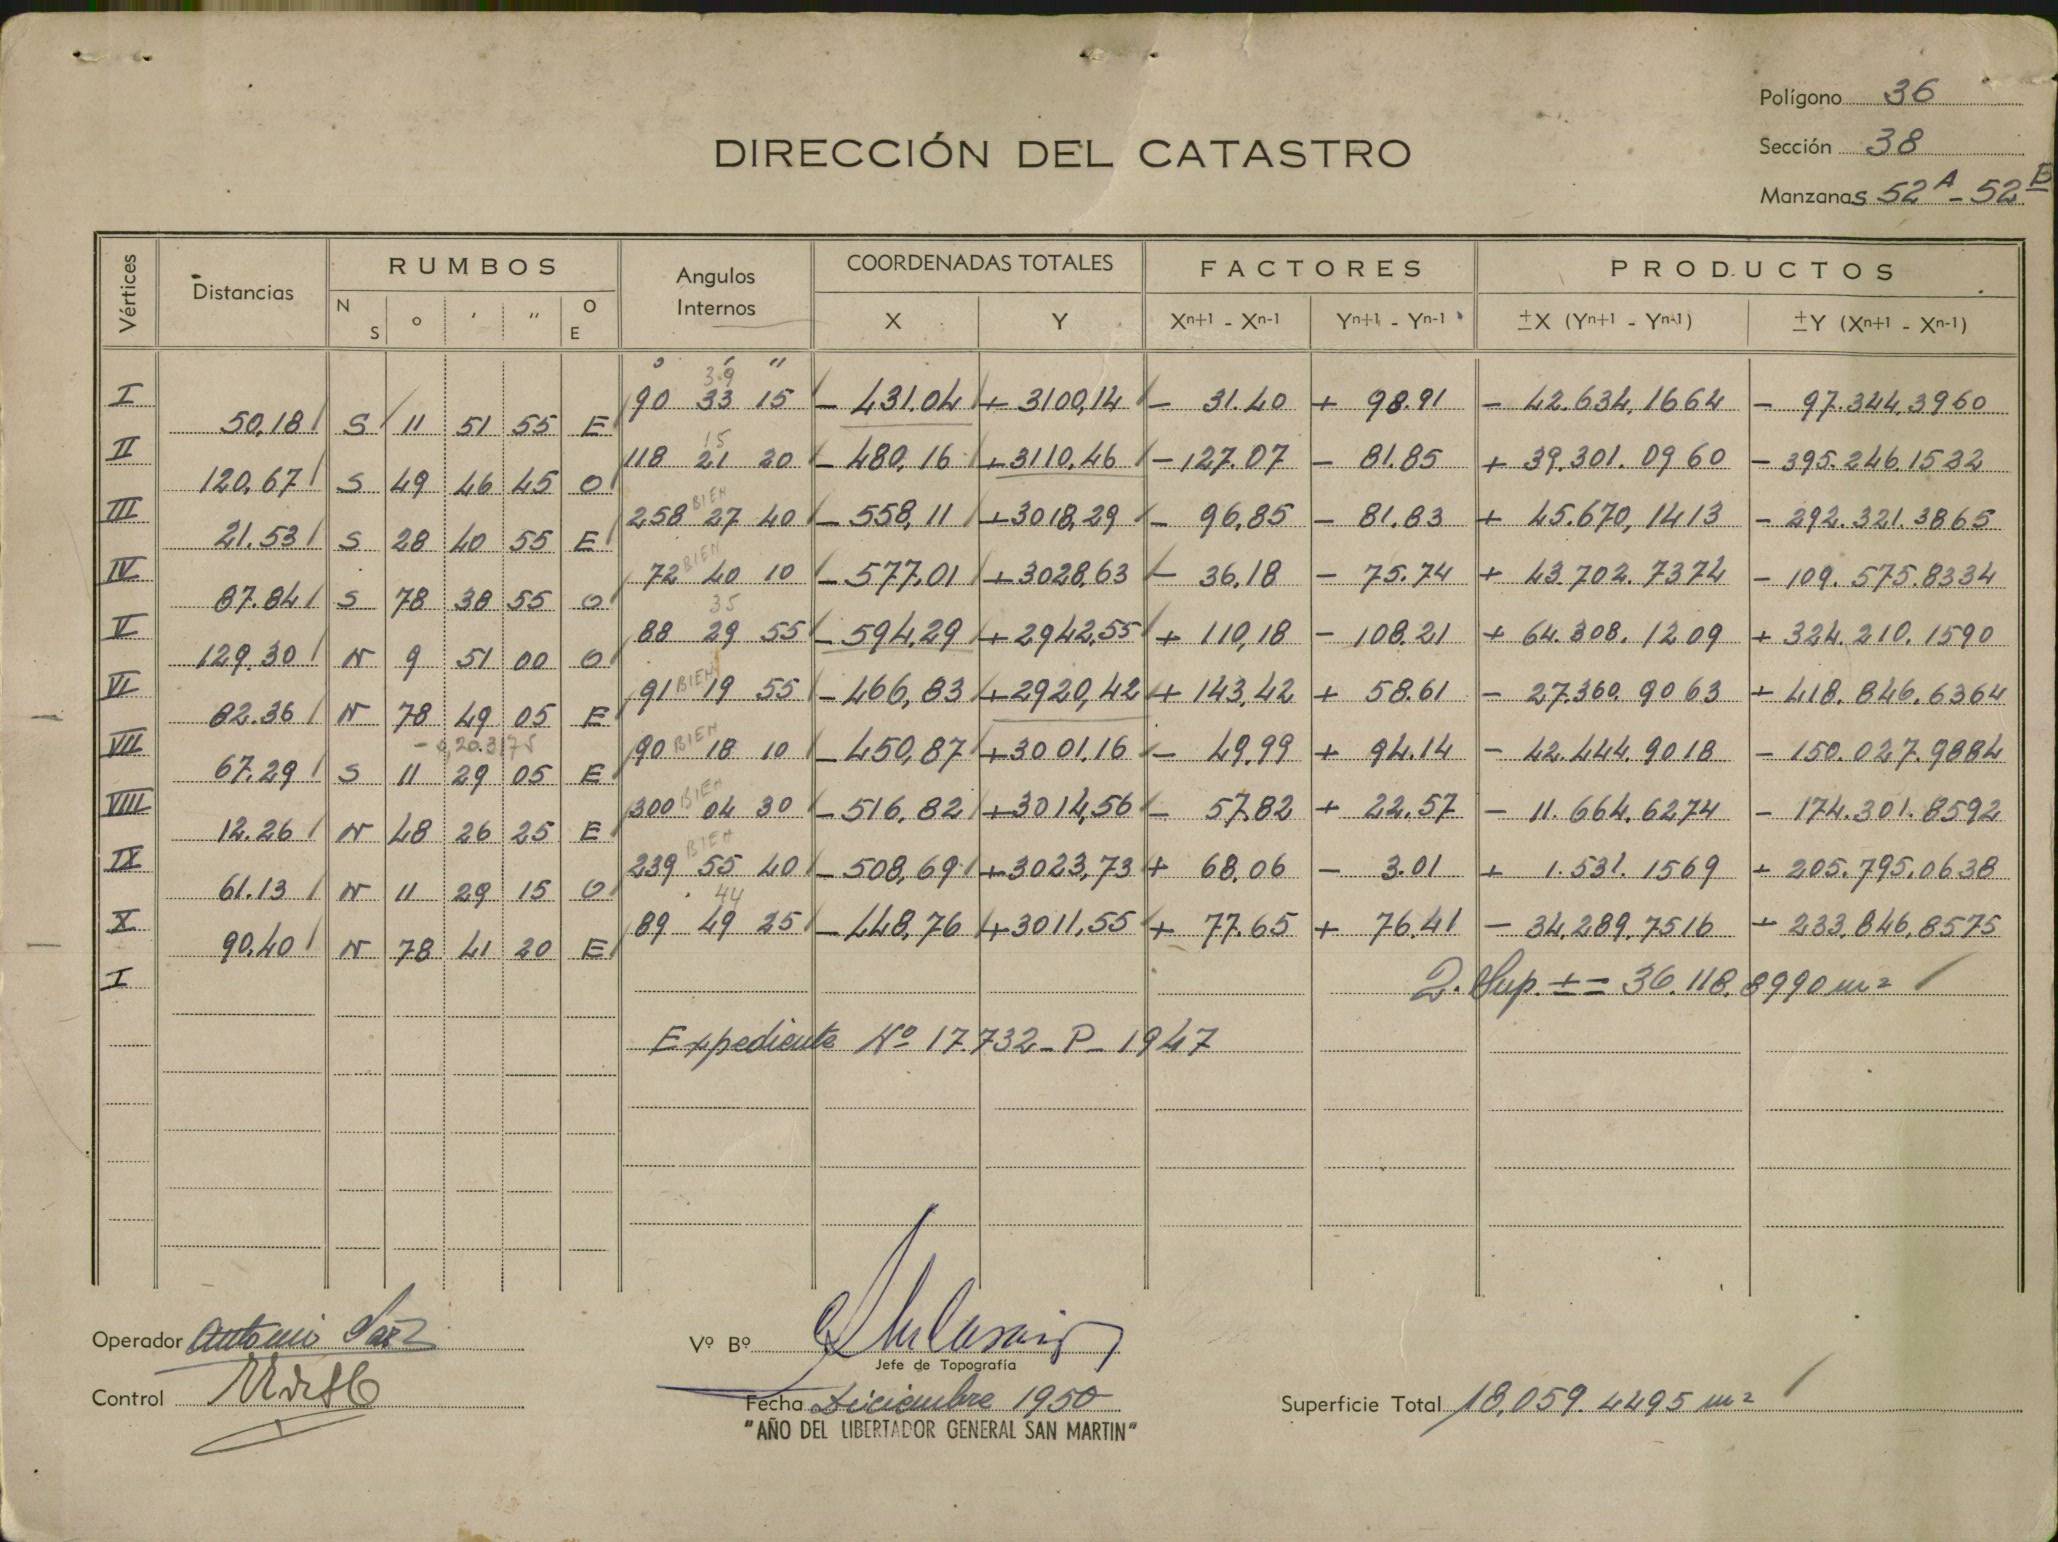 Polígono 36
Sección 38
Manzanas 52 A - 52 B
DIRECCIÓN DEL CATASTRO
Vértices Distancias RUMBOS Angulos Internos COORDENADAS TOTALES FACTORES PRODUCTOS
N S ° ' " O E X Y Xn+1 - Xn-1 Yn+1 - Yn-1 ±X (Yn+1 - Yn-1) ±Y (Xn+1 - Xn-1)
° ' "
39
I 90 33 15 - 431.04 + 3100,14 - 31.40 + 98.91 - 42.634,1664 - 97.344,3960
50,18 S 11 51 55 E
15
II 118 21 20 - 480,16 + 3110,46 - 127.07 - 81.85 + 39.301.0960 - 395.246.1522
120,67 S 49 46 45 O
BIEN
III 258 27 40 - 558,11 + 3018,29 - 96,85 - 81.83 + 45.670,1413 - 292.321.3865
21.53 S 28 40 55 E
BIEN
IV 72 40 10 - 577,01 + 3028,63 - 36,18 - 75.74 + 43.702.7374 - 109.575.8334
87.84 S 78 38 55 O
35
V 88 29 55 - 594,29 + 2942,55 + 110,18 - 108.21 + 64.308.1209 + 324.210.1590
129.30 N 9 51 00 O
BIEN
VI 91 19 55 - 466,83 + 2920,42 + 143,42 + 58.61 - 27.360.9063 + 418.846.6364
82.36 N 78 49 05 E
BIEN
VII 90 18 10 - 450,87 + 3001.16 - 49.99 + 94.14 - 42.444.9018 - 150.027.9884
67.29 S 11 29 05 E
BIEN
VIII 300 04 30 - 516,82 + 3014,56 - 57.82 + 22.57 - 11.664.6274 - 174.301.8592
12.26 N 48 26 25 E
BIEN
IX 239 55 40 - 508,69 + 3023,73 + 68.06 - 3.01 + 1.531.1569 + 205.795.0638
61.13 N 11 29 15 O
44
X 89 49 25 - 448,76 + 3011,55 + 77.65 + 76.41 - 34.289.7516 + 233.846.8575
90,40 N 78 41 20 E
I 2. Sup. ± = 36.118.8990 m²
Expediente Nº 17.732 - P - 1947
Operador Antonio
Vº Bº
Jefe de Topografía
Control
Fecha Diciembre 1950
Superficie Total 18,059.4495 m²
"AÑO DEL LIBERTADOR GENERAL SAN MARTIN"